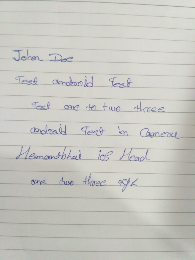 John Doe
Test android Test
Test one to two three
android Test in Camera
ios Head
one two three